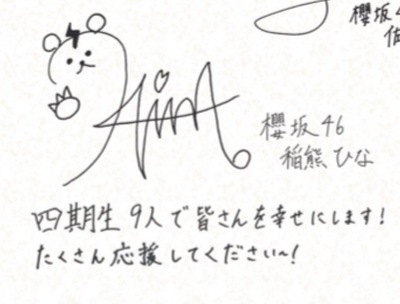 櫻坂4
佐
Hina
櫻坂46
稲熊ひな
四期生9人で皆さんを幸せにします!
たくさん応援してください〜!